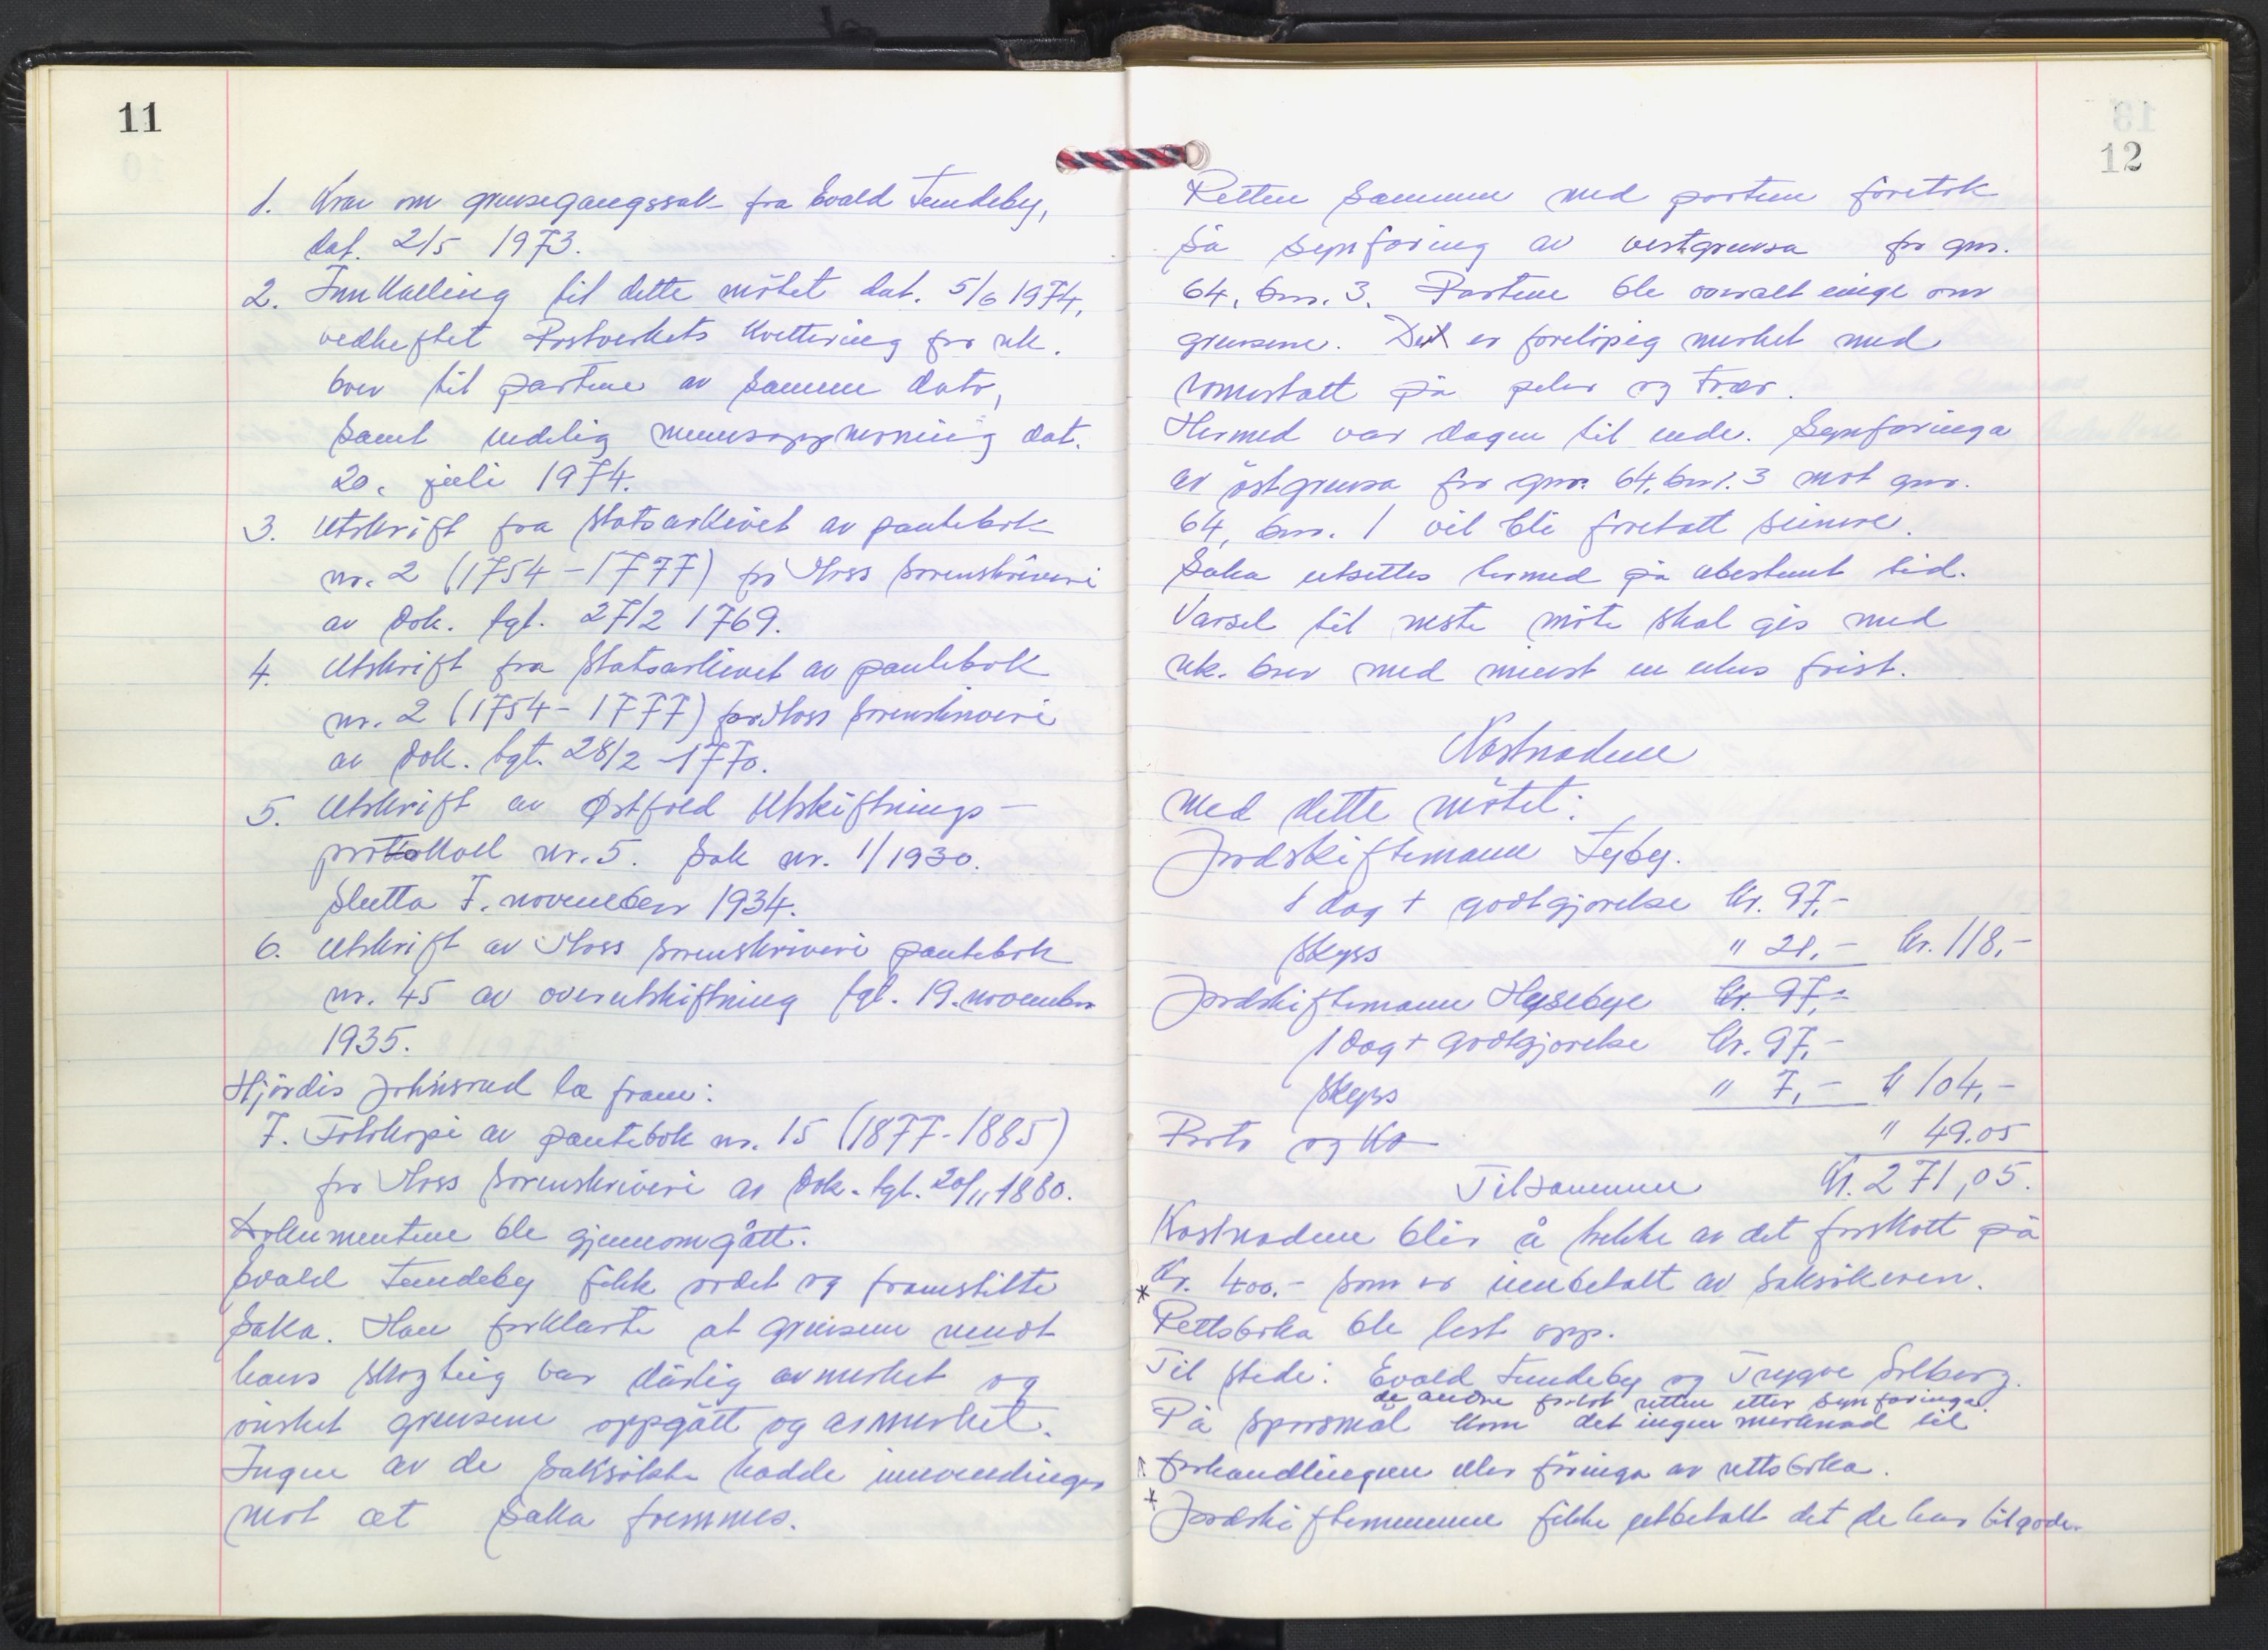 11
1. Krav om grensegangssak fra Evald Tundeby,
dat. 2/5 1973.
2. Innkalling til dette mötet dat. 5/6 1974,
vedheftet Postverkets kvittering for rek.
brev til partene av samme dato,
samt endelig
20. juli 1974.
3. Utskrift fra Statsarkivet av pantebok
nr. 2 (1754-1777) for Moss sorenskriveri
av dok. tgl. 27/2 1769.
4. Utskrift fra Statsarkivet av pantebok
nr. 2 (1754-1777) for Moss sorenskriveri
av dok. tgl. 28/2 -1770.
5. Utskrift av Østfold Utskiftnings-
protokoll nr. 5. Sak nr. 1/1930.
Slutta 7. november 1934.
6. Utskrift av Moss sorenskriveri pantebok
nr. 45 av overutskiftning tgl. 19. november
1935.
Hjördis Johnsrud la fram:
7. Fotokopi av pantebok nr. 15 (1877-1885)
for Moss sorenskriveri av dok. tgl. 20/11 1880.
Dokumentene ble gjennomgått.
Evald Tundeby fikk ordet og framstilte
saka. Han forklarte at grensene rundt
hans skogteig var dårlig avmerket og
önsket grensene oppgått og avmerket.
Ingen av de saksökte hadde innvendinger
mot at saka fremmes.
12
Retten sammen med partene foretok
så synfaring av vestgrensa for gnr.
64, bnr. 3. Partene ble overalt enige om
grensene. Det er forelöpig merket med
på peler og trær.
Hermed var dagen til ende. Synfaringa
av östgrensa for gnr. 64, bnr. 3 mot gnr.
64, bnr. 1 vil bli foretatt seinere.
Saka utsettes hermed på ubestemt tid.
Varsel til neste möte skal gis med
rek. brev med minst en ukes frist.
Kostnadene
med dette mötet:
Jordskiftemann Tyby.
1 dag + godtgjorelse kr. 97,-
Skyss " 21,- kr. 118,-
Jordskiftemann Huseby kr. 97,-
1 dag + godtgjorelse kr. 97,-
Skyss " 7,- " 104,-
Porto og ko " 49.05
Tilsammen kr. 271,05.
Kostnadene blir å trekke av det forskott på
* kr. 400.- som er innbetalt av saksökeren.
Rettsboka ble lest opp.
Til stede: Evald Tundeby og Trygve Solberg.
de andre forlot retten etter synfaringa.
På sporsmål kom det ingen merknad til
forhandlingene eller föringa av rettsboka.
* Jordskiftemennene fikk utbetalt det de har tilgode.